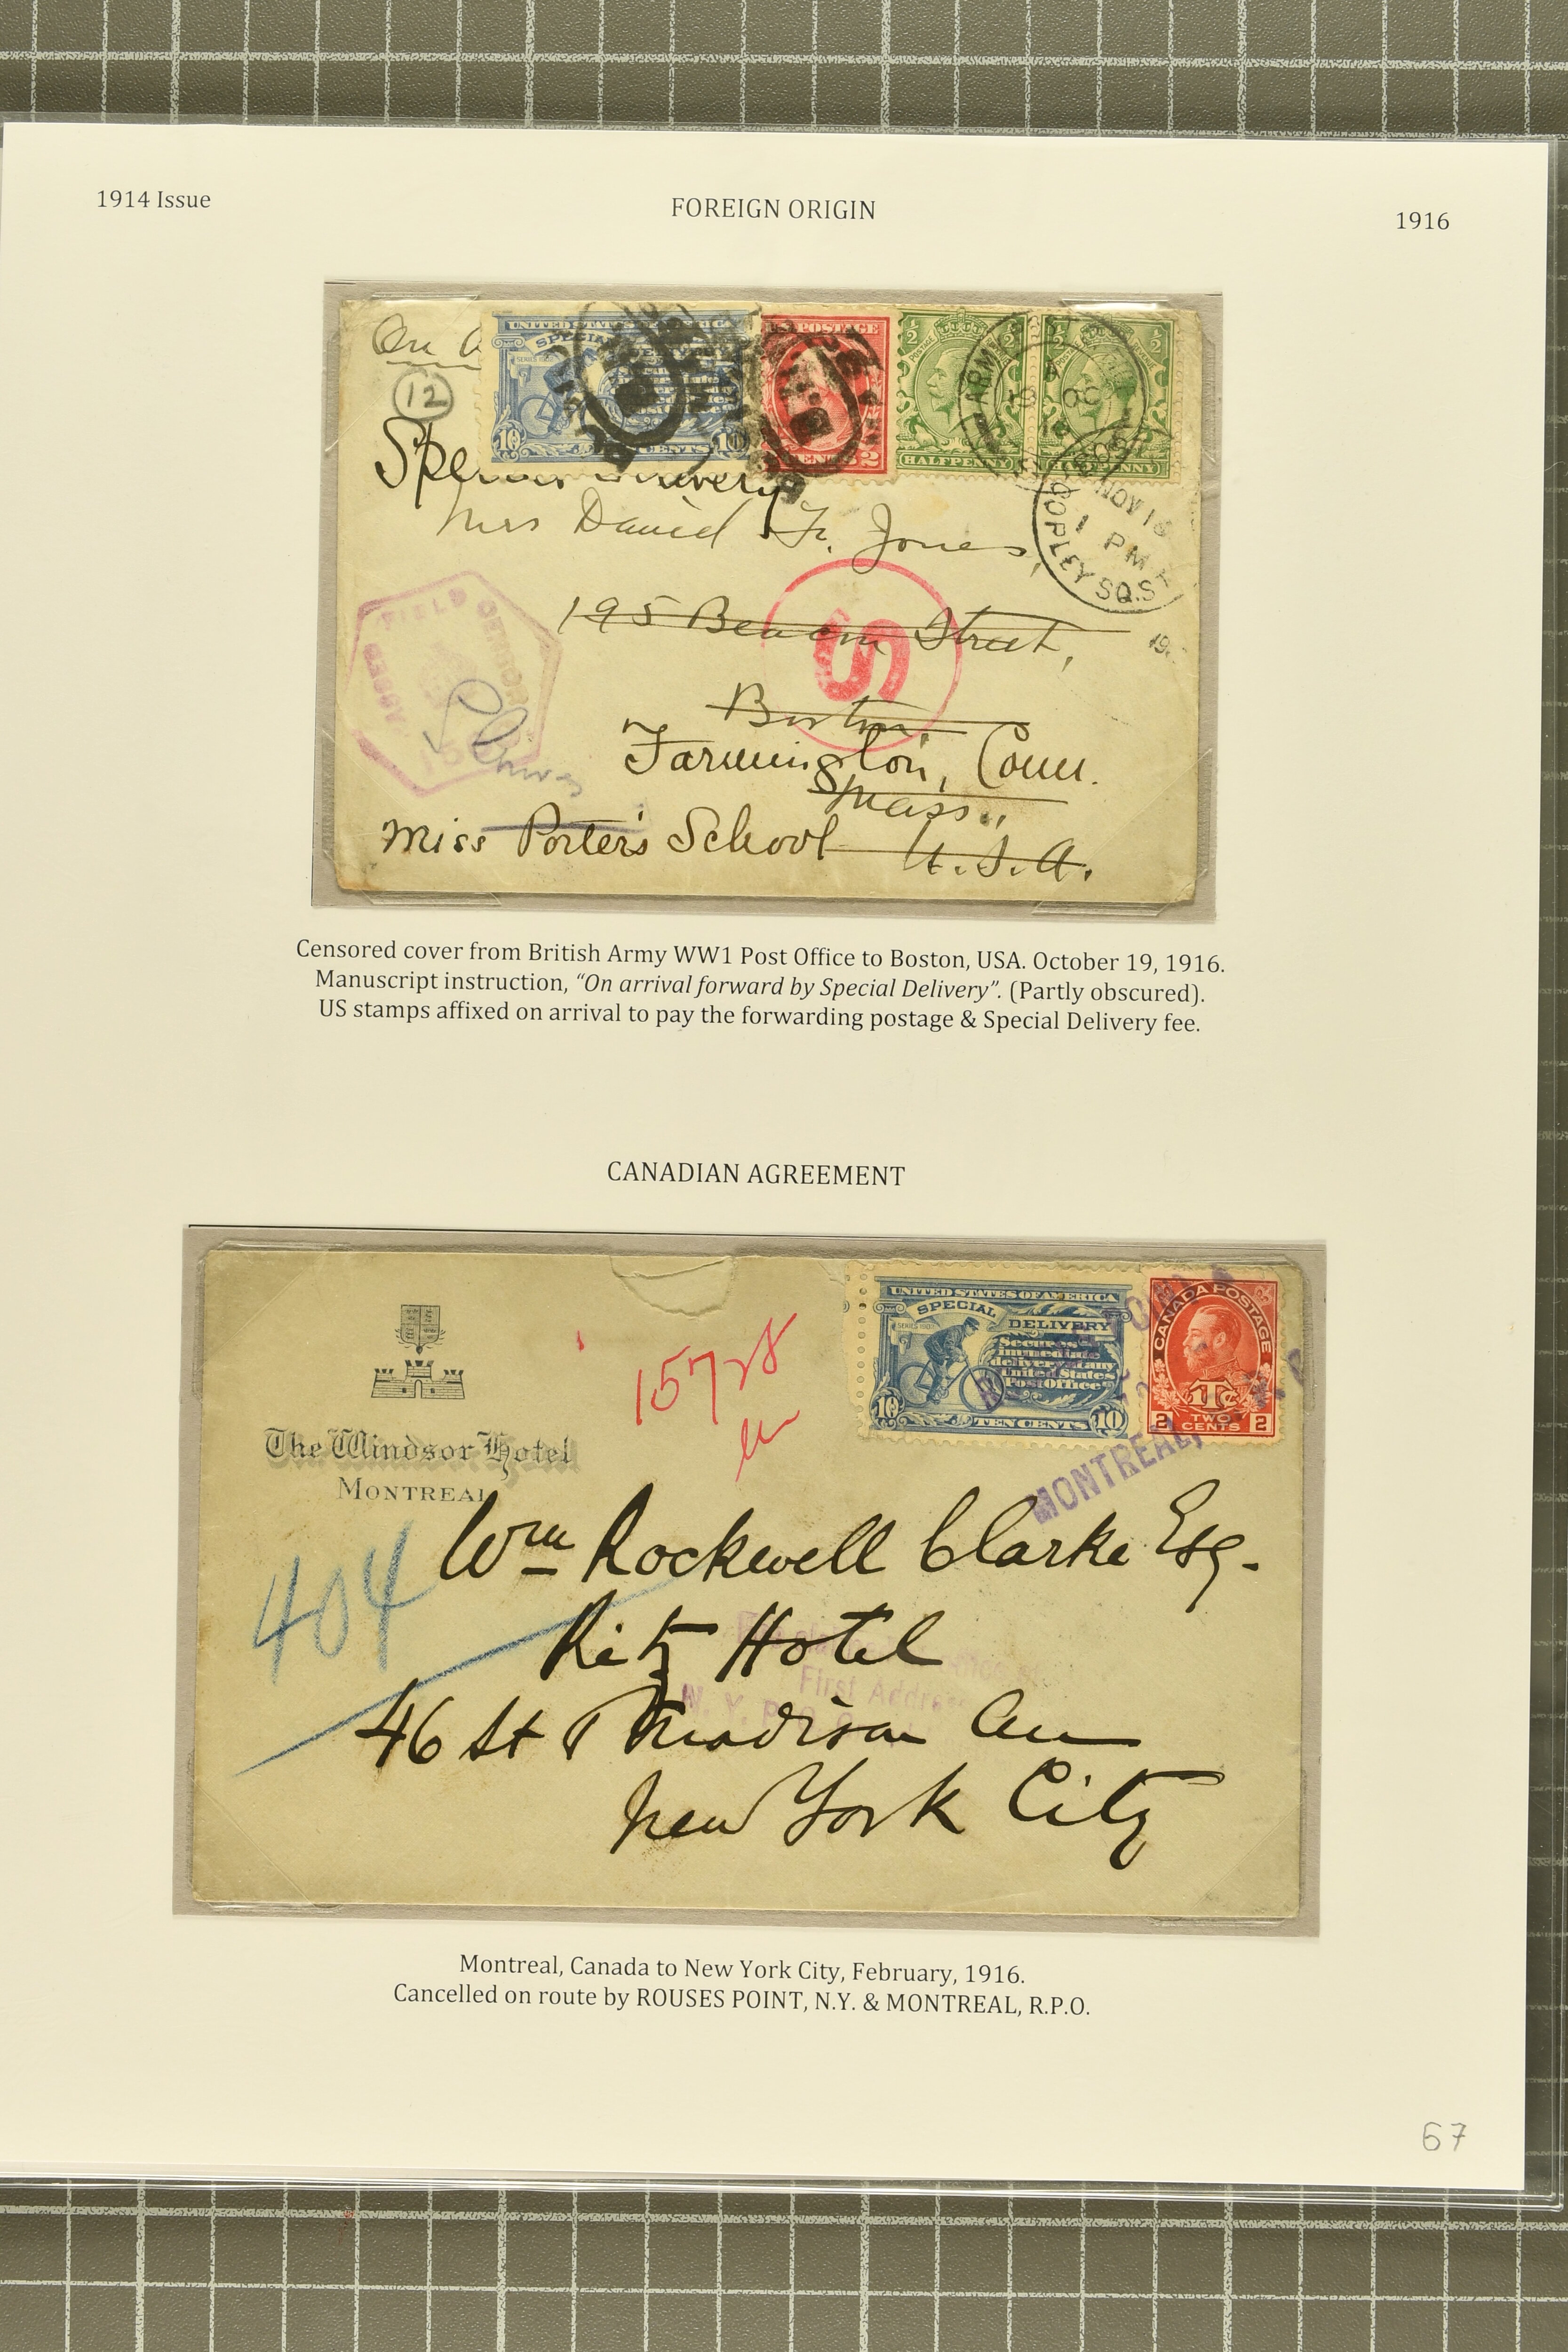 1914 Issue
FOREIGN ORIGIN
1916
On
12
UNITED STATES
SPECIAL
SERIES 1902
10 CENTS 10
POSTAGE
CENTS 2
½ POSTAGE ½
HALFPENNY
½ ½
ARMY
OC
BOS
NOV 16
1 PM
COPLEY SQ.S
Special Delivery
Mrs David Fr. Jones,
195 Beacon Street,
S
Boston,
Farmington, Conn.
Mass.,
Miss Porter's School
U.S.A.
FIELD
Censored cover from British Army WW1 Post Office to Boston, USA. October 19, 1916.
Manuscript instruction, “On arrival forward by Special Delivery”. (Partly obscured).
US stamps affixed on arrival to pay the forwarding postage & Special Delivery fee.
CANADIAN AGREEMENT
The Windsor Hotel
MONTREAL
157
UNITED STATES OF AMERICA
SPECIAL
DELIVERY
SERIES 1902
Secures
immediate
delivery at any
United States
Post Office
10 TEN CENTS 10
CANADA POSTAGE
1Tc
2 TWO CENTS 2
MONTREAL,
404
Wm Rockwell Clarke Esq.
Ritz Hotel
First Address
N. Y. P.
46 St & Madison Av
New York City
Montreal, Canada to New York City, February, 1916.
Cancelled on route by ROUSES POINT, N.Y. & MONTREAL, R.P.O.
67